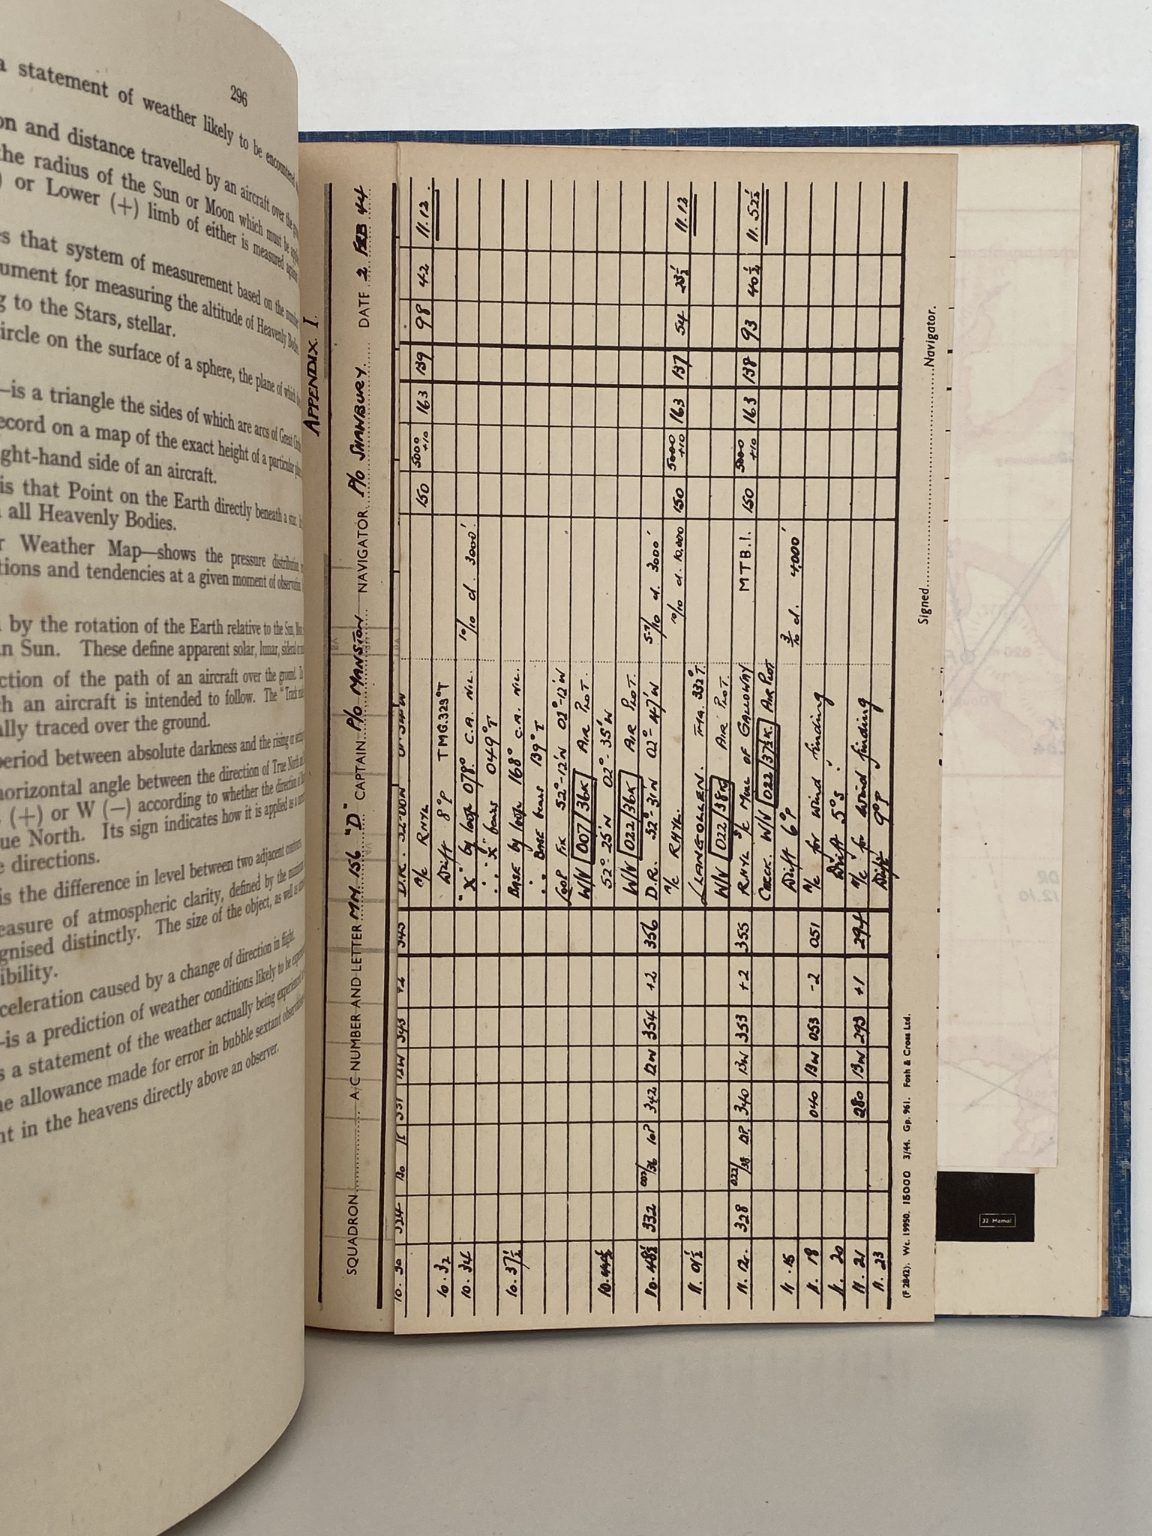 296
a statement of weather likely to be encountered
on and distance travelled by an aircraft over the
the radius of the Sun or Moon which must be
) or Lower (+) limb of either is measured against
es that system of measurement based on the
ument for measuring the altitude of Heavenly Bodies
g to the Stars, stellar.
ircle on the surface of a sphere, the plane of which
—is a triangle the sides of which are arcs of Great
ecord on a map of the exact height of a particular
ght-hand side of an aircraft.
is that Point on the Earth directly beneath a star.
all Heavenly Bodies.
r Weather Map—shows the pressure distribution,
tions and tendencies at a given moment of observation.
by the rotation of the Earth relative to the Sun,
n Sun. These define apparent solar, lunar, sidereal
ction of the path of an aircraft over the ground.
ch an aircraft is intended to follow. The "Track
ally traced over the ground.
period between absolute darkness and the rising or
horizontal angle between the direction of True North and
(+) or W (−) according to whether the direction of
ue North. Its sign indicates how it is applied
e directions.
is the difference in level between two adjacent contours
easure of atmospheric clarity, defined by the
gnised distinctly. The size of the object, as well as
ibility.
cceleration caused by a change of direction in flight.
—is a prediction of weather conditions likely to be
s a statement of the weather actually being experienced
e allowance made for error in bubble sextant
nt in the heavens directly above an observer.
APPENDIX. I.
SQUADRON A/C NUMBER AND LETTER MM.156 "D" CAPTAIN P/O MANSTON NAVIGATOR P/O SWANBURY DATE 2 FEB 44
10.30 324 130 331 12W 343 +2 345
A/C RHYL 150 5000 +10 163 139 98 42 11.12
10.32 Drift 8°P TMG.323°T
10.34 "X" by loop 078° C.A. NIL. 10/10 cl. 3000'
∴ "X" bears 049°T
10.37½ BASE by loop 168° C.A. NIL.
∴ BASE bears 139°T
52°-12'N 02°-12'W
W/V 007/36K AIR PLOT.
52° 25'N 02°-35'W
W/V 022/36K AIR PLOT.
10.48½ 332 342 12W 354 +2 356 D.R. 52°31N 02°47'W 5-7/10 cl. 3000'
A/C RHYL 10/10 cl. 10,000 150 5000 +10 163 137 54 23½ 11.12
11.01½ LLANGOLLEN. TMG.332°T.
W/V 022/38K AIR PLOT.
11.12 328 022/38 12P 340 13W 353 +2 355 RHYL A/C MULL OF GALLOWAY M.T.B.I. 150 5000 +10 163 138 93 40½ 11.52½
CHECK. W/V 022/37½K AIR PLOT
11.15 Drift 6°P 3/10 cl. 4,000'
11.18 040 13W 053 -2 051 A/C for wind finding
11.20 Drift 5°S
11.21 280 13W 293 +1 294 A/C for wind finding
11.23 Drift 9°P
Signed Navigator.
(P 2842). Wt. 19950. 15000 3/44. Gp. 961. Fosh & Cross Ltd.
DR
12.10